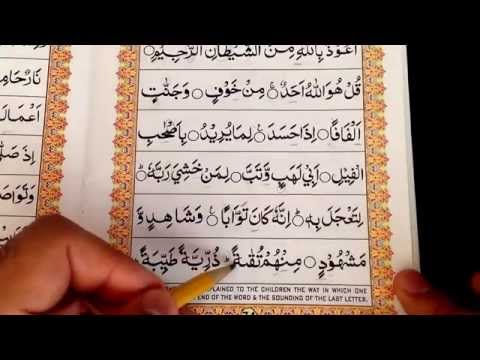 اَعُوْذُ بِاللّٰهِ مِنَ الشَّيْطَانِ الرَّجِيْمِ ○
قُلْ هُوَ اللّٰهُ اَحَدٌ ○ مِنْ خَوْفٍ ○ وَجَنّٰتٍ
اَلْفَافًا ○ اِذَا حَسَدَ ○ لِمَا يُرِيْدُ ○ بِاَصْحٰبِ
الْفِيْلِ ○ اَبِيْ لَهَبٍ وَّتَبَّ ○ لِمَنْ خَشِيَ رَبَّهٗ ○
لِتَعْجَلَ بِهٖ ○ اِنَّهٗ كَانَ تَوَّابًا ○ وَشَاهِدٍ
مَشْهُوْدٍ ○ مِنْهُمْ تُقٰىةً ○ ذُرِّيَّةً طَيِّبَةً
PLAINED TO THE CHILDREN THE WAY IN WHICH ONE
END OF THE WORD & THE SOUNDING OF THE LAST LETTER.
نَارٌ حَامِ
اَعْمَالَ
اِذَا صَلّٰ
وَتَوَاصَ